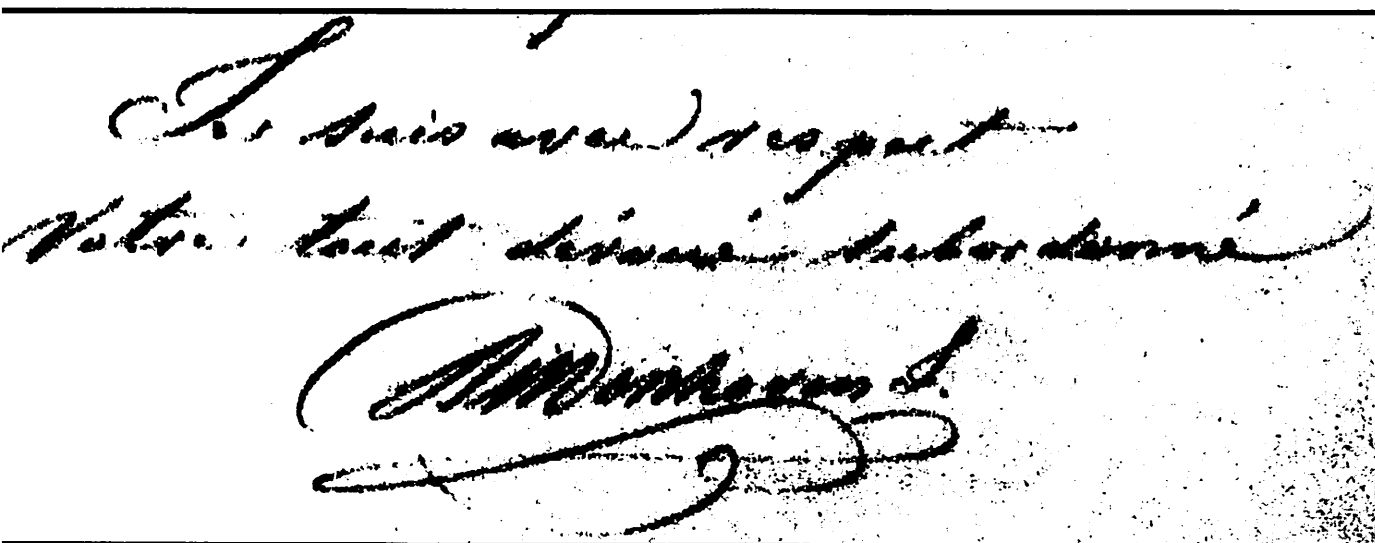 Je suis avec respect
Votre tout dévoué subordonné